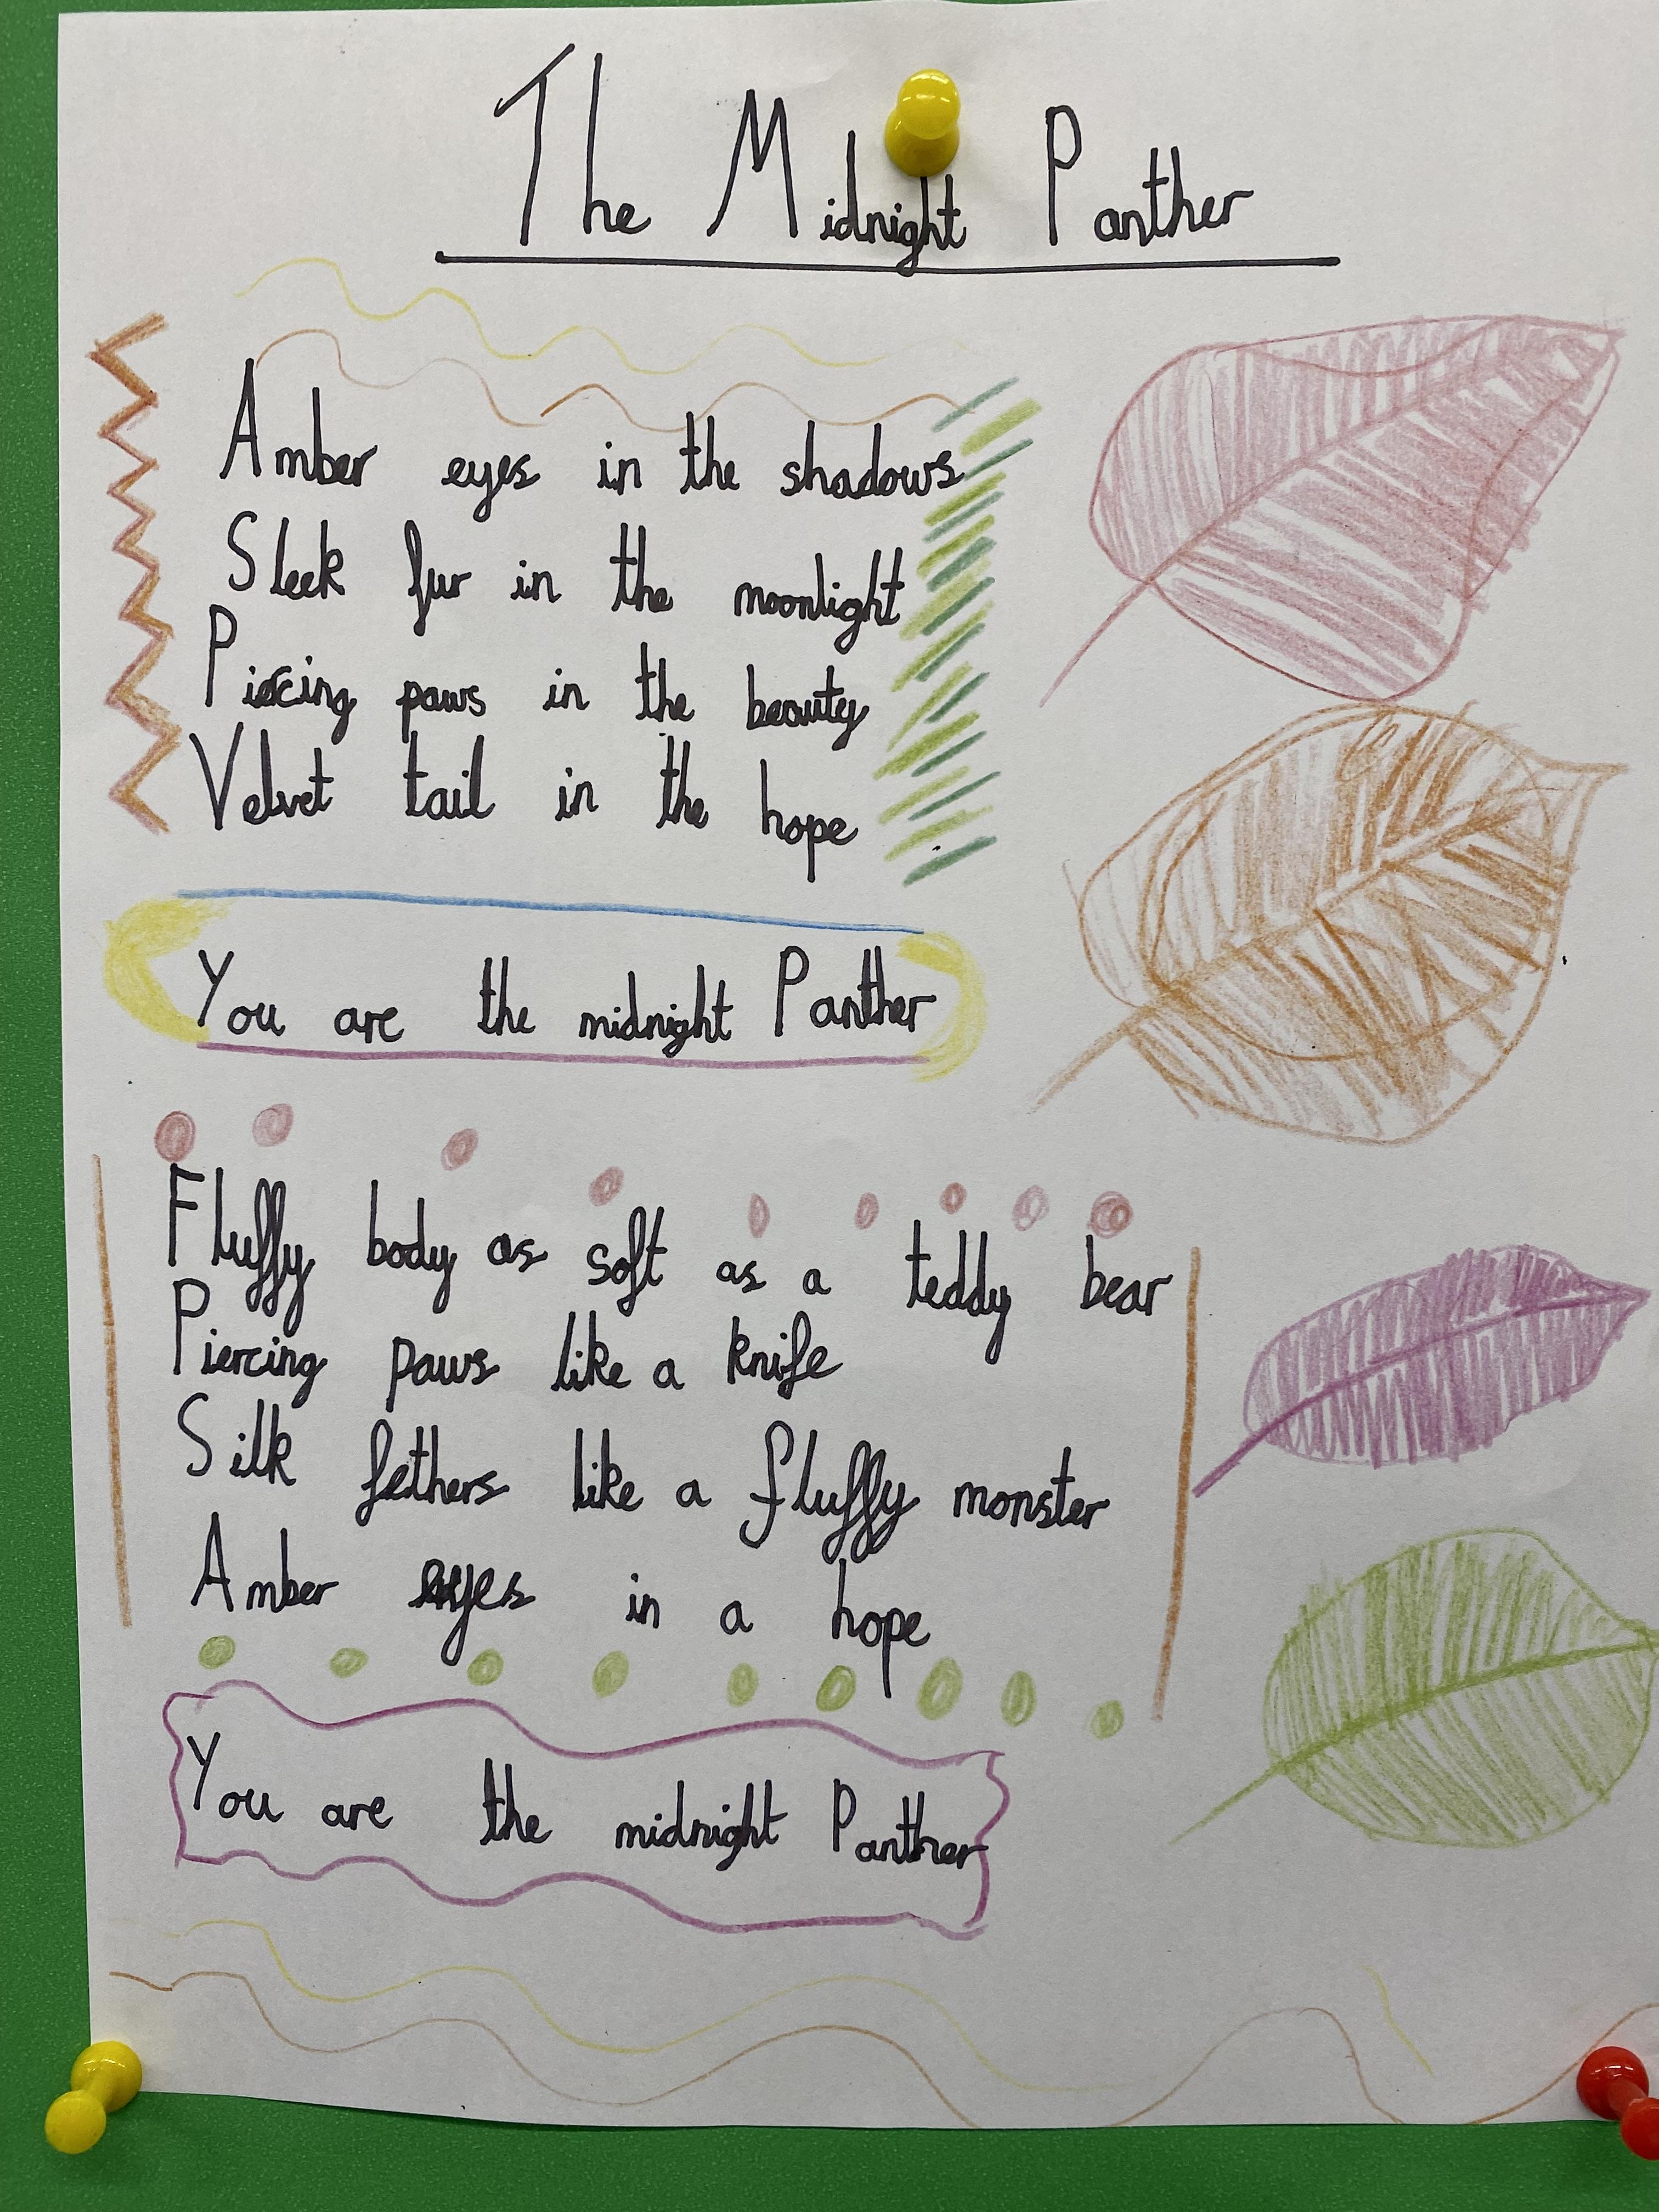 The Midnight Panther
Amber eyes in the shadows
Sleek fur in the moonlight
Piercing paws in the beauty
Velvet tail in the hope
You are the midnight Panther
Fluffy body as soft as a teddy bear
Piercing paws like a knife
Silk fethers like a fluffy monster
Amber eyes in a hope
You are the midnight Panther